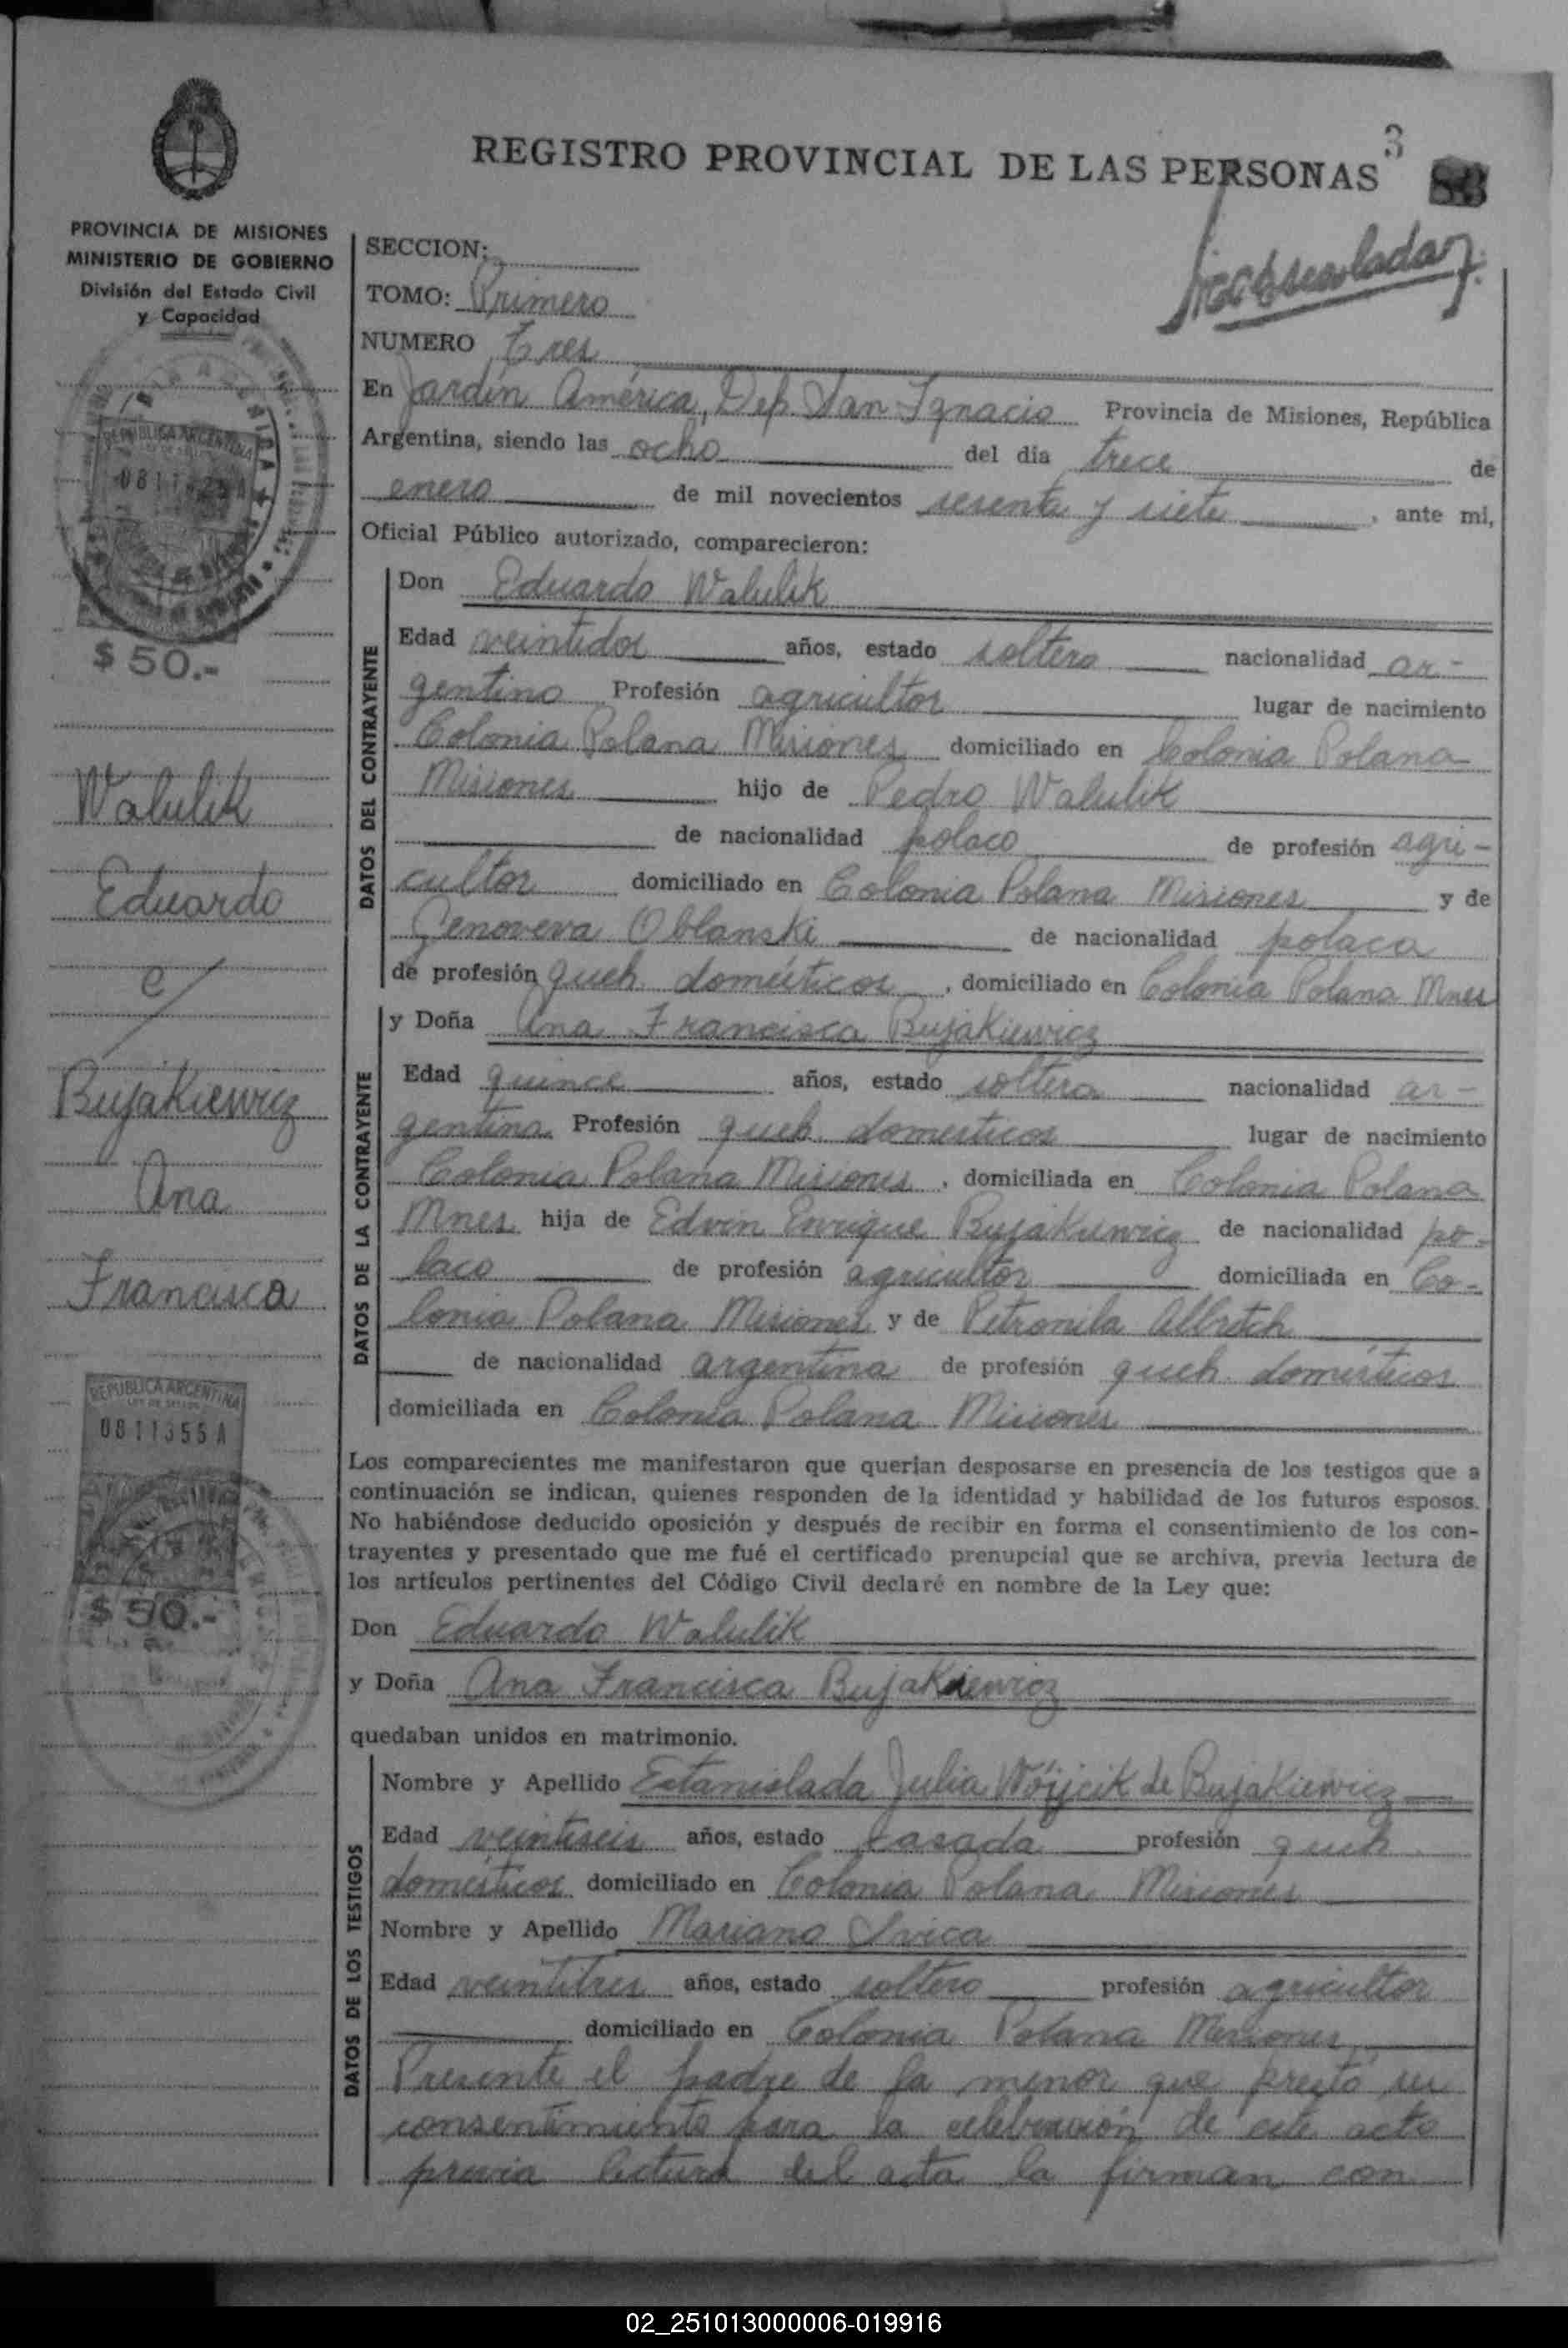 REGISTRO PROVINCIAL DE LAS PERSONAS
3
PROVINCIA DE MISIONES
MINISTERIO DE GOBIERNO
División del Estado Civil
y Capacidad
SECCION:
TOMO: Primero
NUMERO Tres
En Jardín América, Dep. San Ignacio Provincia de Misiones, República
Argentina, siendo las ocho del día trece de
enero de mil novecientos sesenta y siete, ante mi,
Oficial Público autorizado, comparecieron:
DATOS DEL CONTRAYENTE
Don Eduardo Walulik
Edad veintidos años, estado soltero nacionalidad ar-
gentino Profesión agricultor lugar de nacimiento
Colonia Polana Misiones domiciliado en Colonia Polana
Misiones hijo de Pedro Walulik
de nacionalidad polaco de profesión agri-
cultor domiciliado en Colonia Polana Misiones y de
Genoveva Oblanski de nacionalidad polaca
de profesión queh. domésticos, domiciliado en Colonia Polana Mnes
DATOS DE LA CONTRAYENTE
y Doña Ana Francisca Bujakiewicz
Edad quince años, estado soltera nacionalidad ar-
gentina Profesión queh. domesticos lugar de nacimiento
Colonia Polana Misiones, domiciliada en Colonia Polana
Mnes hija de Edvin Enrique Bujakiewicz de nacionalidad po-
laco de profesión agricultor domiciliada en Co-
lonia Polana Misiones y de Petronila Albrech
de nacionalidad argentina de profesión queh. domésticos
domiciliada en Colonia Polana Misiones
Los comparecientes me manifestaron que querían desposarse en presencia de los testigos que a
continuación se indican, quienes responden de la identidad y habilidad de los futuros esposos.
No habiéndose deducido oposición y después de recibir en forma el consentimiento de los con-
trayentes y presentado que me fué el certificado prenupcial que se archiva, previa lectura de
los artículos pertinentes del Código Civil declaré en nombre de la Ley que:
Don Eduardo Walulik
y Doña Ana Francisca Bujakiewicz
quedaban unidos en matrimonio.
DATOS DE LOS TESTIGOS
Nombre y Apellido Estanislada Julia Wójcik de Bujakiewicz
Edad veintiseis años, estado casada profesión queh.
domésticos domiciliado en Colonia Polana Misiones
Nombre y Apellido Mariano
Edad veintitres años, estado soltero profesión agricultor
domiciliado en Colonia Polana Misiones
Presente el padre de la menor que prestó su
consentimiento para la celebración de este acto
previa lectura del acta la firman con
REPUBLICA ARGENTINA
$ 50.-
Walulik
Eduardo
c/
Bujakiewicz
Ana
Francisca
REPUBLICA ARGENTINA
0811355 A
$ 50.-
02_251013000006-019916